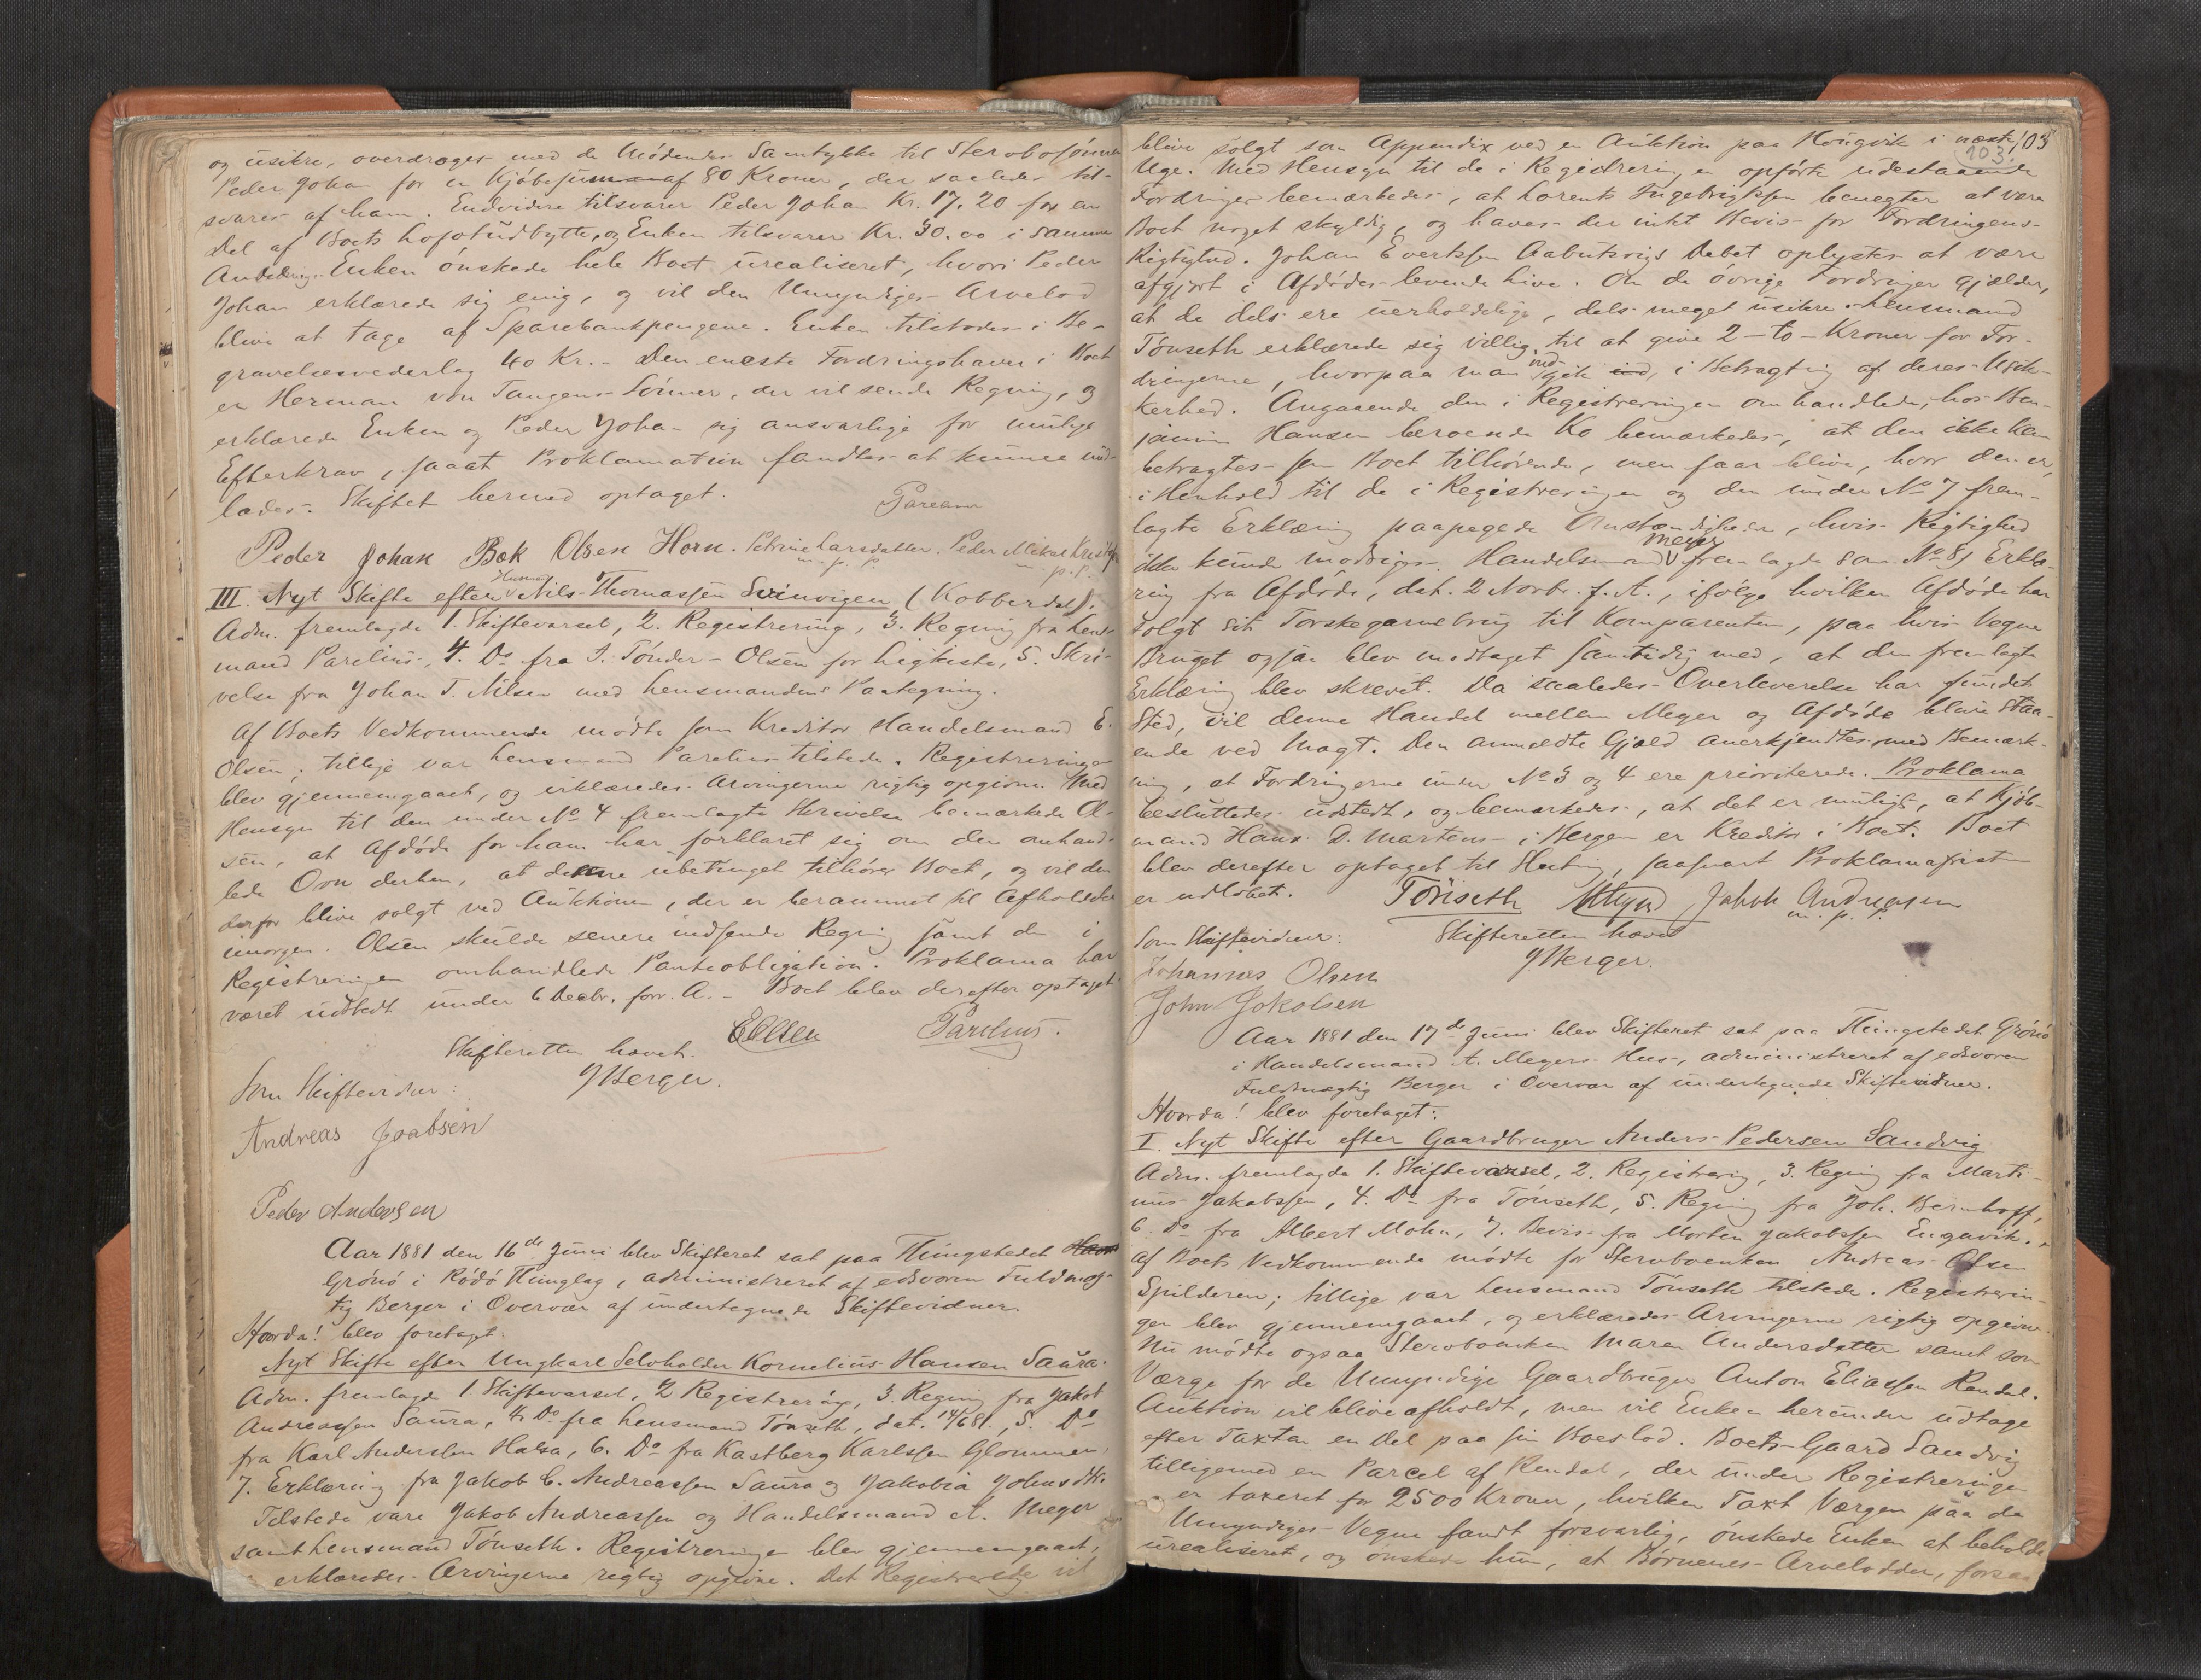 og usikre, overdroges med de Mödendes Samtykke til Stervbosönnen
Peder Johan for en Kjöbesum af 80 Kroner, der saaledes til-
svares af ham. Endvidere tilsvarer Peder Johan Kr. 17.20 for en
Del af Boets Lofotudbytte, og Enken tilsvarer Kr. 30.00 i samme
Anledning. Enken önskede hele Boet urealiseret, hvori Peder
Johan erklærede sig enig, og vil den Umyndiges Arvelod
blive at tage af Sparebankpengene. Enken tilstodes i Be-
gravelsesvederlag 40 Kr. - Den eneste Fordringshaver i Boet
er Herman von Tangens Sönner, der vil sende Regning, og
erklærede Enken og Peder Johan sig ansvarlige for mulige
Efterkrav, saaat Proklamation fandtes at kunne und-
lades. Skiftet hermed optaget.
Parelius
Peder Johan Bæk Olsen Horn. Petrine Larsdatter. Peder Mikal Krist
m. p. p. m. p. p.
III. Nyt Skifte efter Husmand Nils Thomassen Svinvigen (Kobberdal).
Adm. fremlagde 1. Skiftevarsel, 2. Registrering, 3. Regning fra Lens-
mand Parelius, 4. Do fra I. Tönder-Olsen for Ligkiste, 5. Skri-
velse fra Johan T. Nilsen med Lensmandens Paategning.
Af Boets Vedkommende mödte som Kreditor Handelsmand E.
Olsen; tillige var Lensmand Parelius tilstede. Registreringen
blev gjennemgaaet, og erklæredes Arvingerne rigtig opgivne. Med
Hensyn til den under No 4 fremlagte Skrivelse bemærkede Ol-
sen, at Afdöde for ham har forklaret sig om den omhand-
lede Ovn derhen, at denne ubetinget tilhörer Boet, og vil den
derfor blive solgt ved Auktionen, der er berammet til Afholdelse
imorgen. Olsen skulde senere indsende Regning samt den i
Registreringen omhandlede Panteobligation. Proklama har
været udstedt under 6 Decbr. forr. A. - Boet blev derefter optaget.
EOlsen Parelius.
Skifteretten hævet.
JBerger.
Som Skiftevidner:
Andreas Joabsen
Peder Andersen
Aar 1881 den 16de Juni blev Skifteret sat paa Thingstedet
Grönö i Rödö Thinglag, administreret af edsvoren Fuldmæg-
tig Berger i Overvær af undertegnede Skiftevidner.
Hvorda! blev foretaget:
Nyt Skifte efter Ungkarl Selvholder Kornelius Hansen Saura.
Adm. fremlagde 1. Skiftevarsel, 2 Registrering, 3. Regning fra Jakob
Andreassen Saura, 4. Do fra Lensmand Tönseth, dat. 14/6 81, 5. Do
fra Karl Anderssen Halsa, 6. Do fra Kastberg Karlssen Glommen,
7. Erklæring fra Jakob C. Andreassen Saura og Jakobia Johnsdtr.
Tilstede vare Jakob Andreassen og Handelsmand A. Meyer
samt Lensmand Tönseth. Registreringen blev gjennemgaaet,
erklæredes Arvingerne rigtig opgivne. Det Registrerede vil
103
103.
blive solgt som Appendix ved en Auktion paa Kougvik i næste
Uge. Med Hensyn til de i Registreringen opförte udestaaende
Fordringer bemærkedes, at Lorents Ingebrigtsen benegter at være
Boet noget skyldig, og haves der intet Bevis for Fordringens
Rigtighed. Johan Evertsen Aabutsvigs Debet oplystes at være
afgjort i Afdödes levende Live. Om de övrige Fordringer gjælder,
at de dels ere uerholdelige, dels meget usikre. Lensmand
Tönseth erklærede sig villig til at give 2 - to - Kroner for For-
dringerne, hvorpaa man indgik ind, i Betragtning af deres Usik-
kerhed. Angaaende den i Registreringen omhandlede, hos Ben-
jamin Hansen beroende Ko bemærkedes, at den ikke kan
betragtes som Boet tilhörende, men faar blive, hvor den er,
i Henhold til de i Registreringen og den under No 7 frem-
lagte Erklæring paapegede Omstændigheder, hvis Rigtighed
ikke kunde modsiges. Handelsmand Meyer fremlagde som No 8) Erklæ-
ring fra Afdöde, dat. 2 Novbr. f. A., ifölge hvilken Afdöde har
solgt sit Torskegarnebrug til Komparenten, paa hvis Vegne
Bruget ogsaa blev modtaget samtidig med, at den fremlagte
Erklæring blev skrevet. Da saaledes Overleverelse har fundet
Sted, vil denne Handel mellem Meyer og Afdöde blive staa-
ende ved Magt. Den anmeldte Gjæld anerkjendtes med Bemærk-
ning, at Fordringerne under No 3 og 4 ere prioriterede. Proklama
besluttedes udstedt, og bemærkedes, at det er muligt, at Kjöb-
mand Hans D. Martens i Bergen er Kreditor i Boet. Boet
blev derefter optaget til Slutning, saasnart Proklamafristen
er udlöbet.
Tönseth AMeyer Jakob Andreassen
m. p. p.
Skifteretten hævet
JBerger.
Som Skiftevidner:
Johannes Olsen
John Jokolsen
Aar 1881 den 17de Juni blev Skifteret sat paa Thingstedet Grönö
i Handelsmand A. Meyers Hus, administreret af edsvoren
Fuldmægtig Berger i Overvær af undertegnede Skiftevidner.
Hvorda! blev foretaget:
I. Nyt Skifte efter Gaardbruger Anders Pedersen Sandvig
Adm. fremlagde 1. Skiftevarsel, 2. Registrering, 3. Regning fra Marti-
nus Jakobssen, 4. Do fra Tönseth, 5. Regning fra Joh. Bernhoff,
6. Do fra Albert Mohn, 7. Bevis fra Morten Jakobssen Engavik.
Af Boets Vedkommende mödte for Stervboenken Andreas Olsen
Spilderen; tillige var Lensmand Tönseth tilstede. Registrerin-
gen blev gjennemgaaet, og erklæredes Arvingerne rigtig opgivne.
Nu mödte ogsaa Stervboenken Maren Andersdatter samt som
Værge for de Umyndige Gaardbruger Anton Eliassen Rendal.
Auktion vil blive afholdt, men vil Enken herunder udtage
efter Taxten en Del paa sin Boeslod. Boets Gaard Sandvig
tilligemed en Parcel af Rendal, der under Registreringen
er taxeret for 2500 Kroner, hvilken Taxt Værgen paa de
Umyndiges Vegne fandt forsvarlig, önskede Enken at beholde
urealiseret, og önskede hun, at Börnenes Arvelodder, forsaa